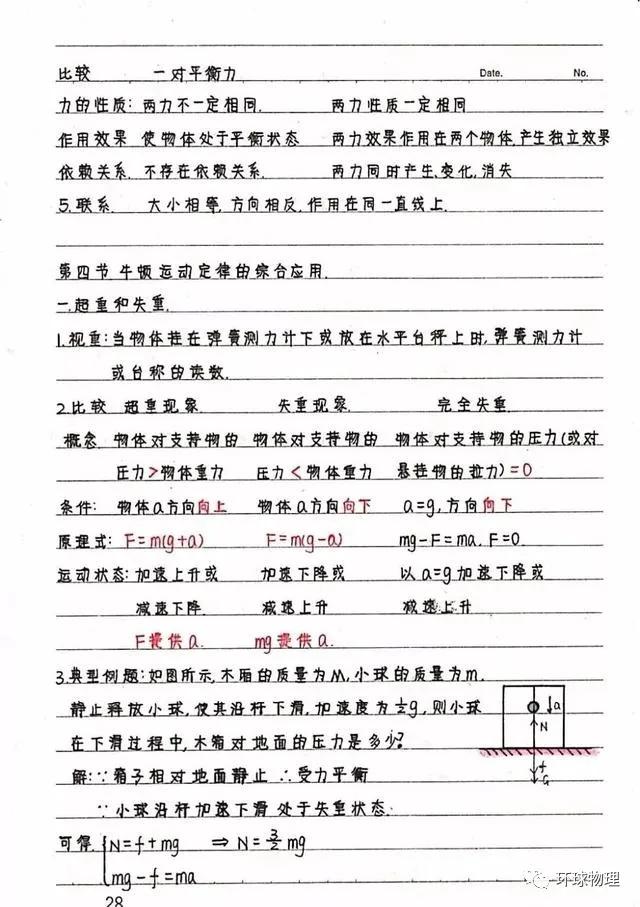 比较 一对平衡力 Date. No.
力的性质: 两力不一定相同. 两力性质一定相同
作用效果 使物体处于平衡状态 两力效果作用在两个物体,产生独立效果
依赖关系. 不存在依赖关系. 两力同时产生、变化,消失
5.联系. 大小相等,方向相反,作用在同一直线上.
第四节 牛顿运动定律的综合应用.
一.超重和失重.
1.视重:当物体挂在弹簧测力计下或放在水平台秤上时,弹簧测力计
或台称的读数.
2.比较 超重现象 失重现象. 完全失重
概念 物体对支持物的 物体对支持物的 物体对支持物的压力(或对
压力>物体重力 压力<物体重力 悬挂物的拉力)=0
条件: 物体a方向向上 物体a方向向下 a=g,方向向下
原理式: F=m(g+a) F=m(g-a) mg-F=ma. F=0.
运动状态:加速上升或 加速下降或 以a=g加速下降或
减速下降. 减速上升 减速上升
F提供a. mg提供a.
3.典型例题:如图所示,木箱的质量为M,小球的质量为m.
静止释放小球,使其沿杆下滑,加速度为½g,则小球
在下滑过程中,木箱对地面的压力是多少?
a
N
f
G
解:∵箱子相对地面静止 ∴受力平衡
∵小球沿杆加速下滑 处于失重状态.
可得 { N=f+mg ⇒ N=3/2 mg
mg-f=ma
28
环球物理